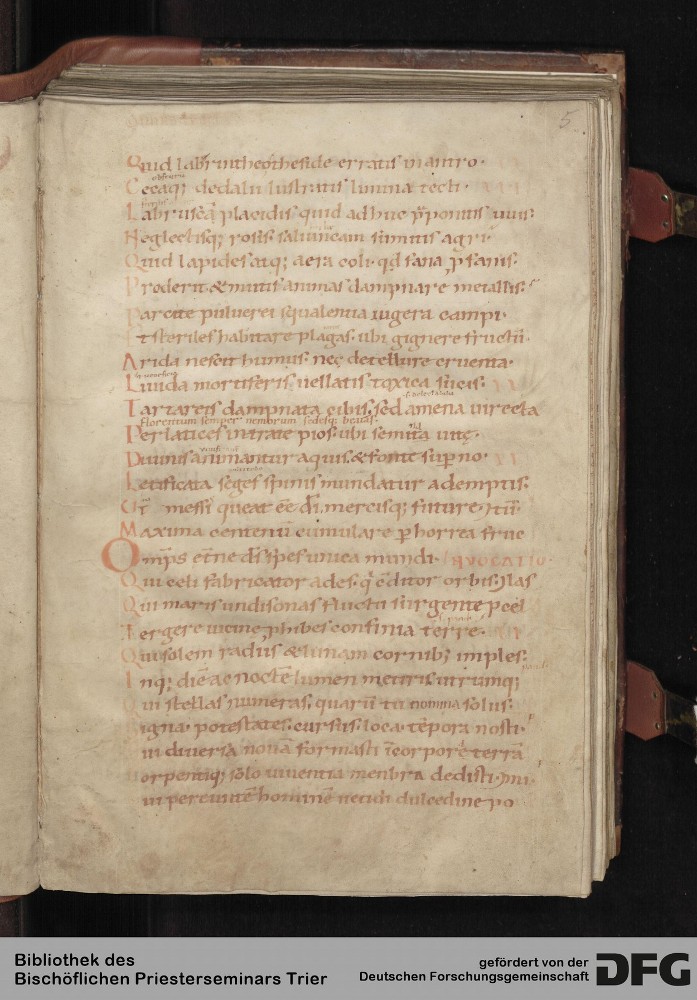 5
Quid labrintheo theside erratis in antro.
Cecaq; dedalii lustratis limina tecti.
Labruscã placidis quid adhuc p̄ponitis uuis:
Neglectisq; rosis saliuncam sumitis agri.
Quid lapides atq; aera coli. qd fana
Proderit & mutis animas dampnare metallis:
Parcite puluerei squalentia iugera campi.
Et steriles habitare plagas. ubi gignere fructū
Arida nescit humus. nec de tellure cruenta.
Liuida mortiferis uellatis toxica sucis.
Tartareis dampnata cibis. sed amena uirecta
florentum semper nemorum sedesq; beatas.
Per latices intrate pios. ubi semita uitę.
Diuinis animantur aquis. & fonte sup̄no.
Letificata seges spinis mundatur ademptis:
Ut messis queat eē dī. mercisq; futurę
Maxima centenū cumulare p horrea fruc
Omp̄s etne ds̄ spes unica mundi. INVOCATIO.
Qui celi fabricator ades. q̄ conditor orbis.
Qui maris undisonas fluctu surgente p cel
Mergere uicine phibes confinia terre.
Qui solem radiis & lunam cornib; imples:
Inq; diē ac noctē lumen metiris utrumq;
Qui stellas numeras. quarū tu nomina solus.
Signa. potestates. cursus. loca. tēpora nosti.
ui diuersa nouam formasti ī corpore terrā
orpentiq; solo uiuentia menbra dedisti.
ui pereuntē hominē uetiti dulcedine po
Bibliothek des
Bischöflichen Priesterseminars Trier
gefördert von der
Deutschen Forschungsgemeinschaft
DFG